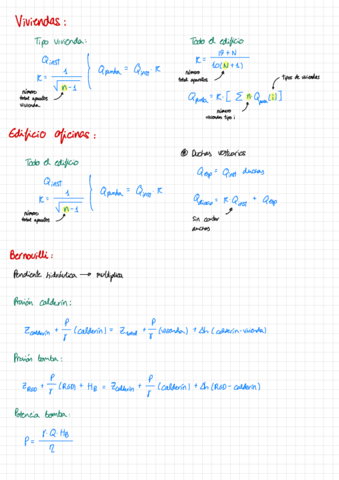 Viviendas:
Tipo vivienda:
Q inst
K = 1 / √(n-1)
número total aparatos vivienda
Q punta = Q inst · K
Todo el edificio
K = (19 + N) / (10(N+1))
número total aparatos
tipos de viviendas
Q punta = K · [ Σ n · Q punta (i) ]
número vivienda tipo i
Edificio oficinas:
Todo el edificio
Q inst
K = 1 / √(n-1)
número total aparatos
Q punta = Q inst · K
* Duchas vestuarios
Q esp = Q inst duchas
K Q inst + Q esp
Sin contar duchas
Bernouilli:
Pendiente hidráulica → multiplica
Presión calderín:
Z calderín + P/γ (calderín) = Z + P/γ (vivienda) + Δh (calderín-vivienda)
Presión bomba:
Z RED + P/γ (RED) + H B = Z calderín + P/γ (calderín) + Δh (RED - calderín)
Potencia bomba:
P = γ · Q · H B / η